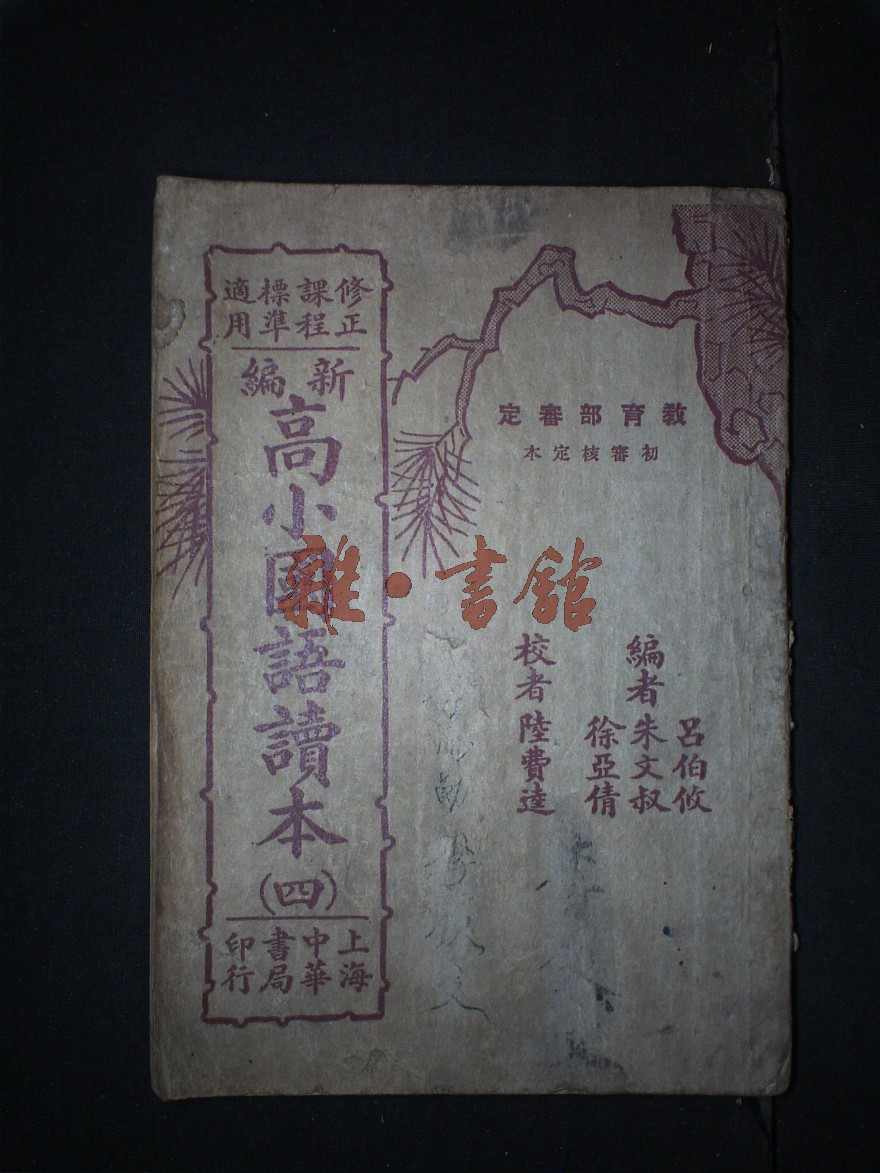 教育部審定
初審核定本
編者 呂伯攸
朱文叔
徐亞倩
校者 陸費逵
修正課程標準適用
新編
高小國語讀本
(四)
上海中華書局印行
雜·書館